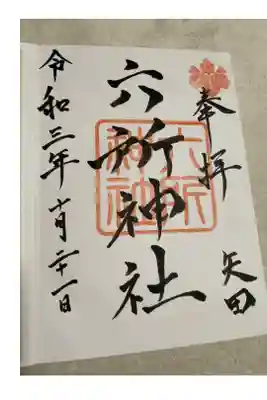 奉拝
矢田
六所神社
六所神社
令和三年十月二十一日